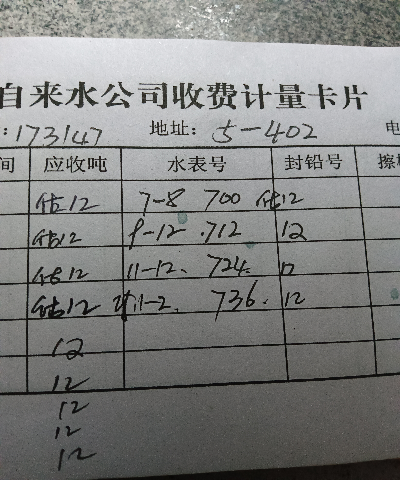 自来水公司收费计量卡片
:173147 地址: 5-402 电
间 应收吨 水表号 封铅号 擦
估12 7-8 700 估12
估12 9-12 .712 12
估12 11-12. 724. 12
估12 1-2. 736. 12
12
12
12
12
12